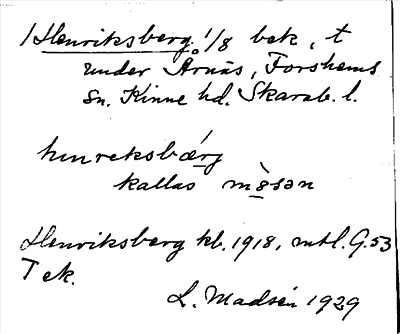 Henriksberg. 1/8 bek, t
under Årnäs, Forshems
sn. Kinne hd. Skarab. l.
hinreksbærg
kallas mosən
Henriksberg kb. 1918, mtl. G. 53
T ek.
L. Madsén 1929